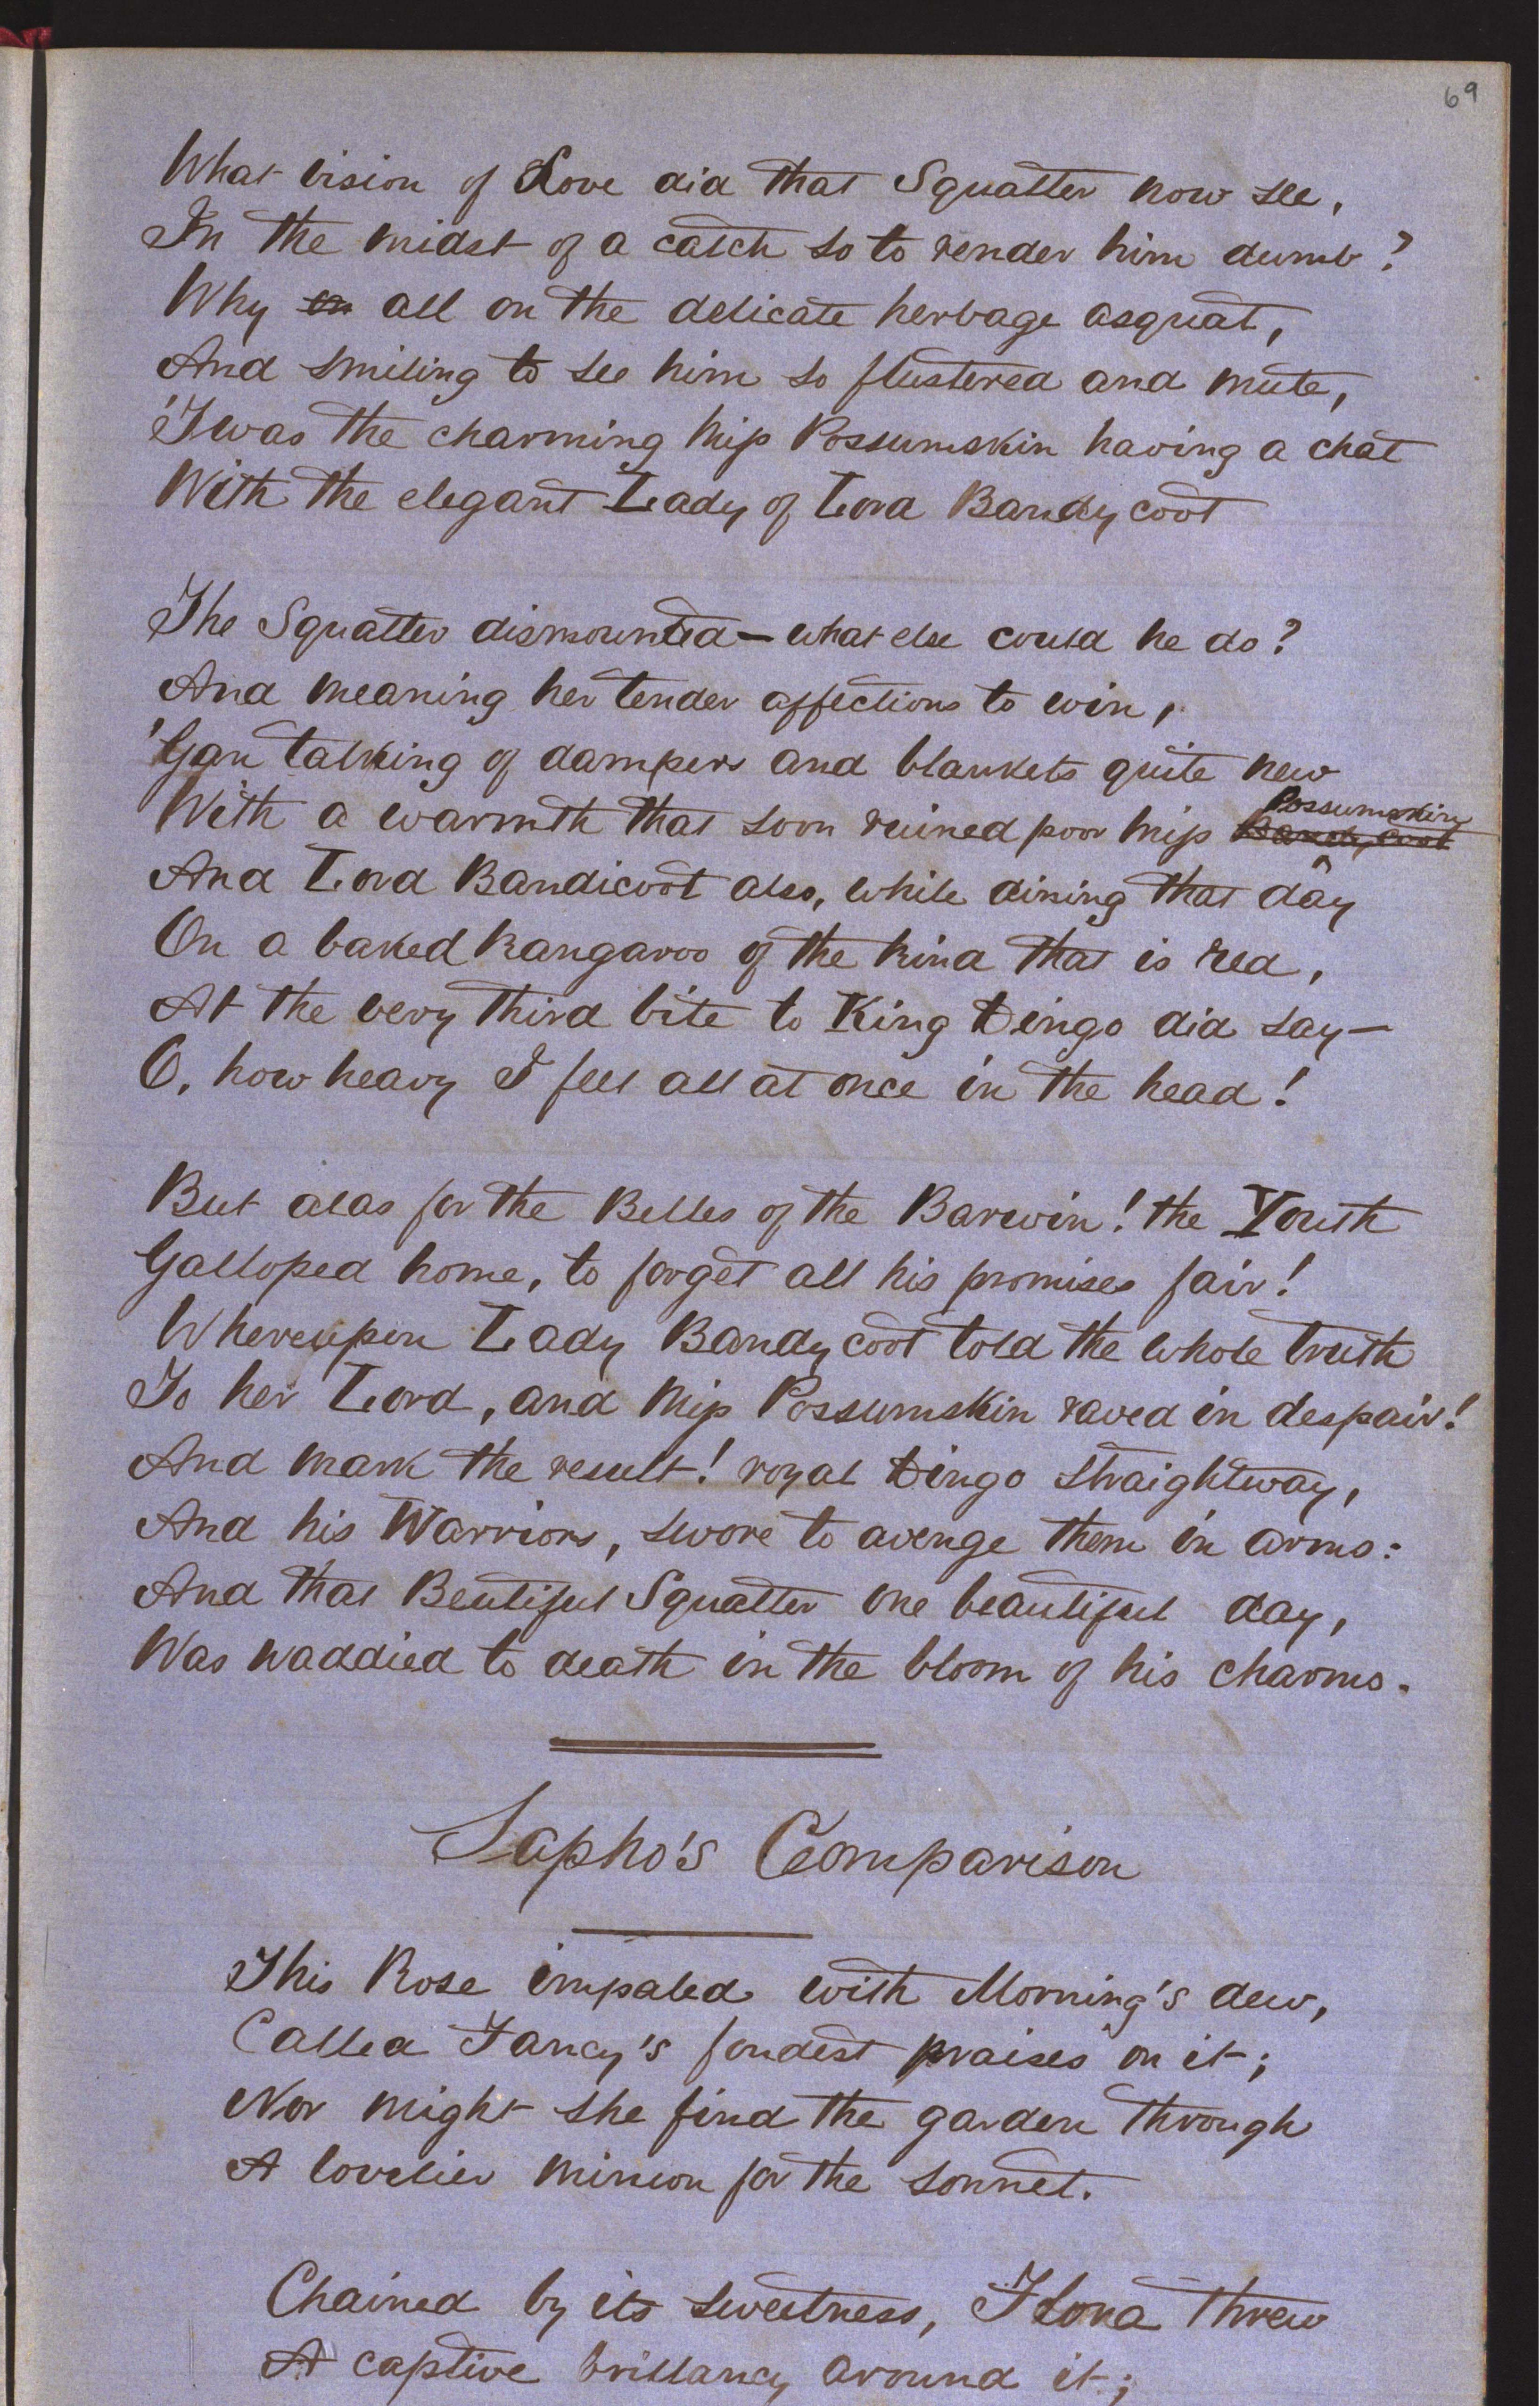 69
What vision of Love did that Squatter now see,
In the midst of a catch so to render him dumb?
Why on all on the delicate herbage asquat,
And smiling to see him so flustered and mute,
'Twas the charming Miss Possumskin having a chat
With the elegant Lady of Lord Bandycoot
The Squatter dismounted — what else could he do?
And meaning her tender affections to win,
'Gan talking of dampers and blankets quite new
Possumskin
With a warmth that soon ruined poor Miss Bandycoot
And Lord Bandicoot also, while dining that day
On a baked Kangaroo of the kind that is red,
At the very third bite to King Dingo did say—
O, how heavy I feel all at once in the head!
But alas for the Belles of the Barwin! the Youth
Galloped home, to forget all his promises fair!
Whereupon Lady Bandycoot told the whole truth
To her Lord, and Miss Possumskin raved in despair!
And mark the result! royal Dingo straightway,
And his Warriors, swore to avenge them in arms:
And that Beutiful Squatter one beautiful day,
Was waddied to death in the bloom of his charms.
Sapho's Comparison
This Rose impaled with Morning's dew,
Called Fancy's fondest praises on it;
Nor might she find the garden through
A lovelier minion for the sonnet.
Chained by its sweetness, Flora threw
A captive brillancy around it;